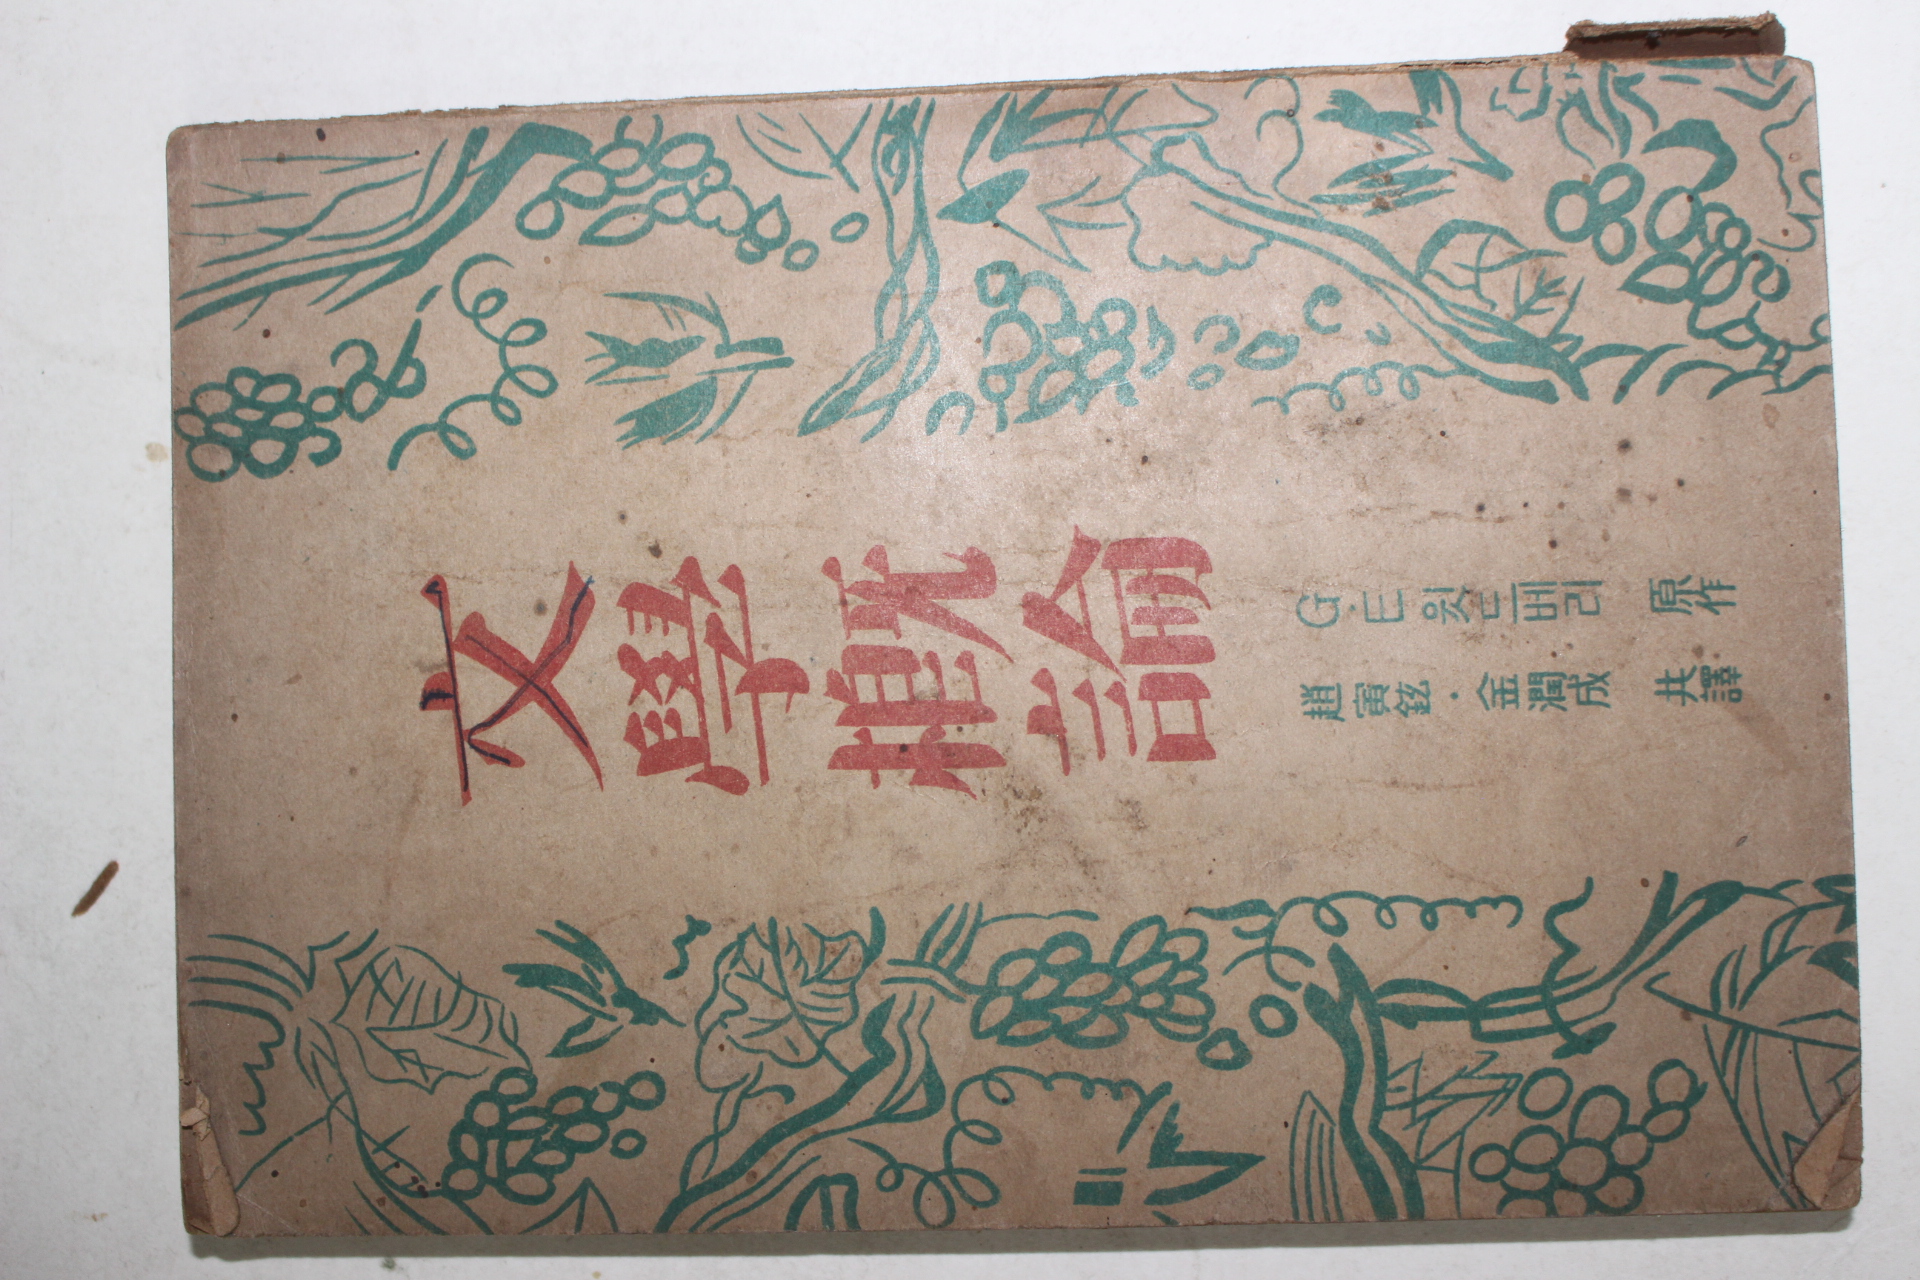 文學概論
G·E 웟드베리 原作
趙寅鉉·金潤成 共譯